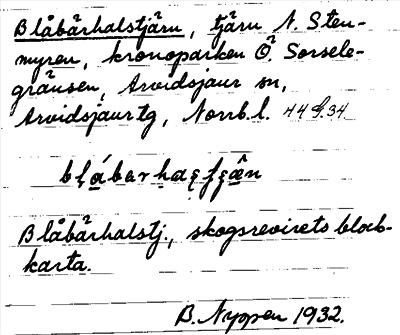 Blåbärhalstjärn, tjärn N. Sten-
myren, kronoparken Ö. Sorsele-
gränsen, Arvidsjaur sn,
Arvidsjaur tg, Norrb. l. 44 G. 34
Blåbärhalstj., skogsrevirets block-
karta.
B. Nyppen 1932.